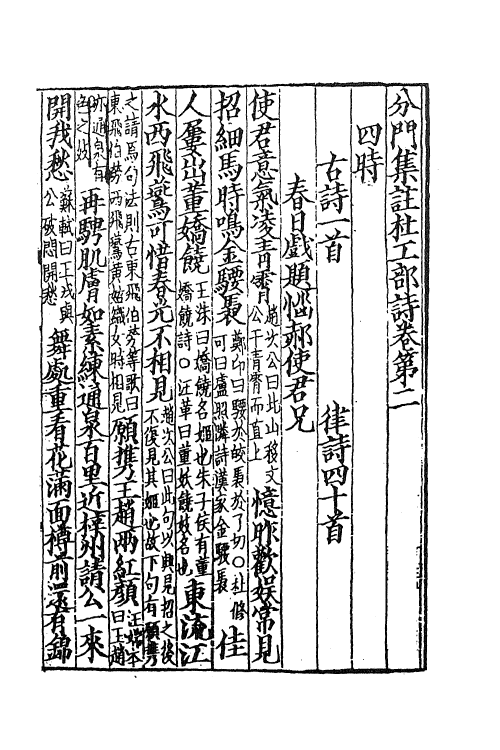 分門集註杜工部詩卷第二
四時
古詩一首　律詩四十首
春日戲題惱郝使君兄
使君意氣凌青霄趙次公曰北山移文公干青霄而直上憶昨歡娛常見
招細馬時鳴金騕褭鄭卬曰騕於皎褭於了切○杜修可曰盧照鄰詩漢家金騕褭佳
人屢出董嬌饒王洙曰嬌饒名姬也朱子侯有董嬌饒詩○汪革曰董妖饒妓名也東流江
水西飛鷰可惜春光不相見趙次公曰此句以興見招之後不復見其姬也故下句有願携
之請焉句法則古東飛伯勞等歌曰東飛伯勞西飛鷰黃姑織女時相見願携王趙兩紅顏汪端本曰王趙
亦通泉有色之妓再騁肌膚如素練通泉百里近梓州請公一來
開我愁蘇軾曰王戎與公破悶開愁舞處重看花滿面樽前還有錦